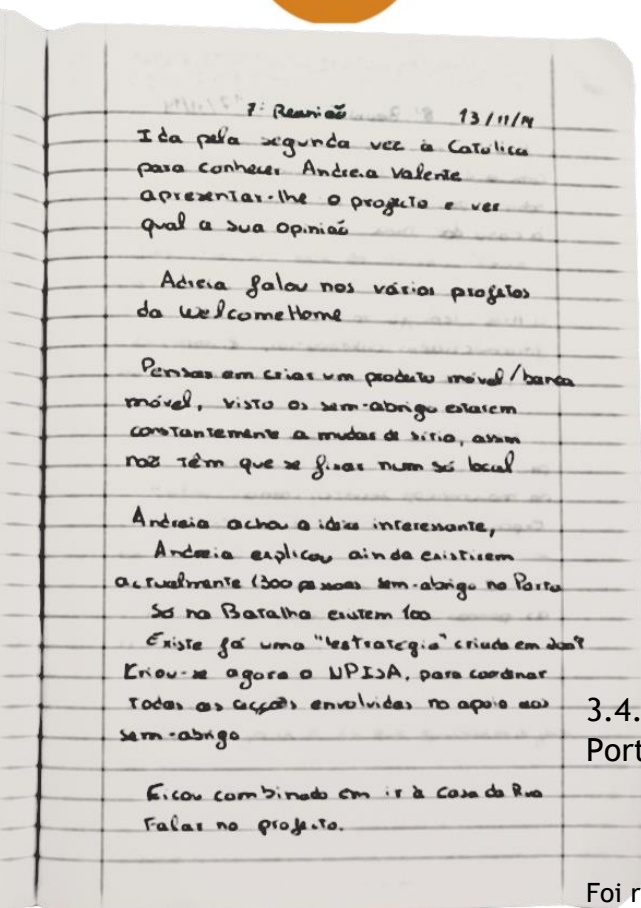 7ª Reunião 13/11/14
Ida pela segunda vez à Catolica
para conhecer Andreia Valente
apresentar-lhe o projeto e ver
qual a sua opinião
Adreia falou nos vários projetos
da WelcomeHome
Pensar em criar um produto móvel/banca
móvel, visto os sem-abrigo estarem
constantemente a mudar de sitio, assim
não têm que se fixar num só local
Andreia achou a ideia interessante,
Andreia explicou ainda existirem
actualmente 1300 pessoas sem-abrigo no Porto
Só na Batalha existem 100
Existe já uma "estratégia" criada em
Criou-se agora o NPISA, para cordenar
todas as acções envolvidas no apoio aos
sem-abrigo
Ficou combinado em ir à Casa da Rua
Falar no projeto.
3.4.
Port
Foi r